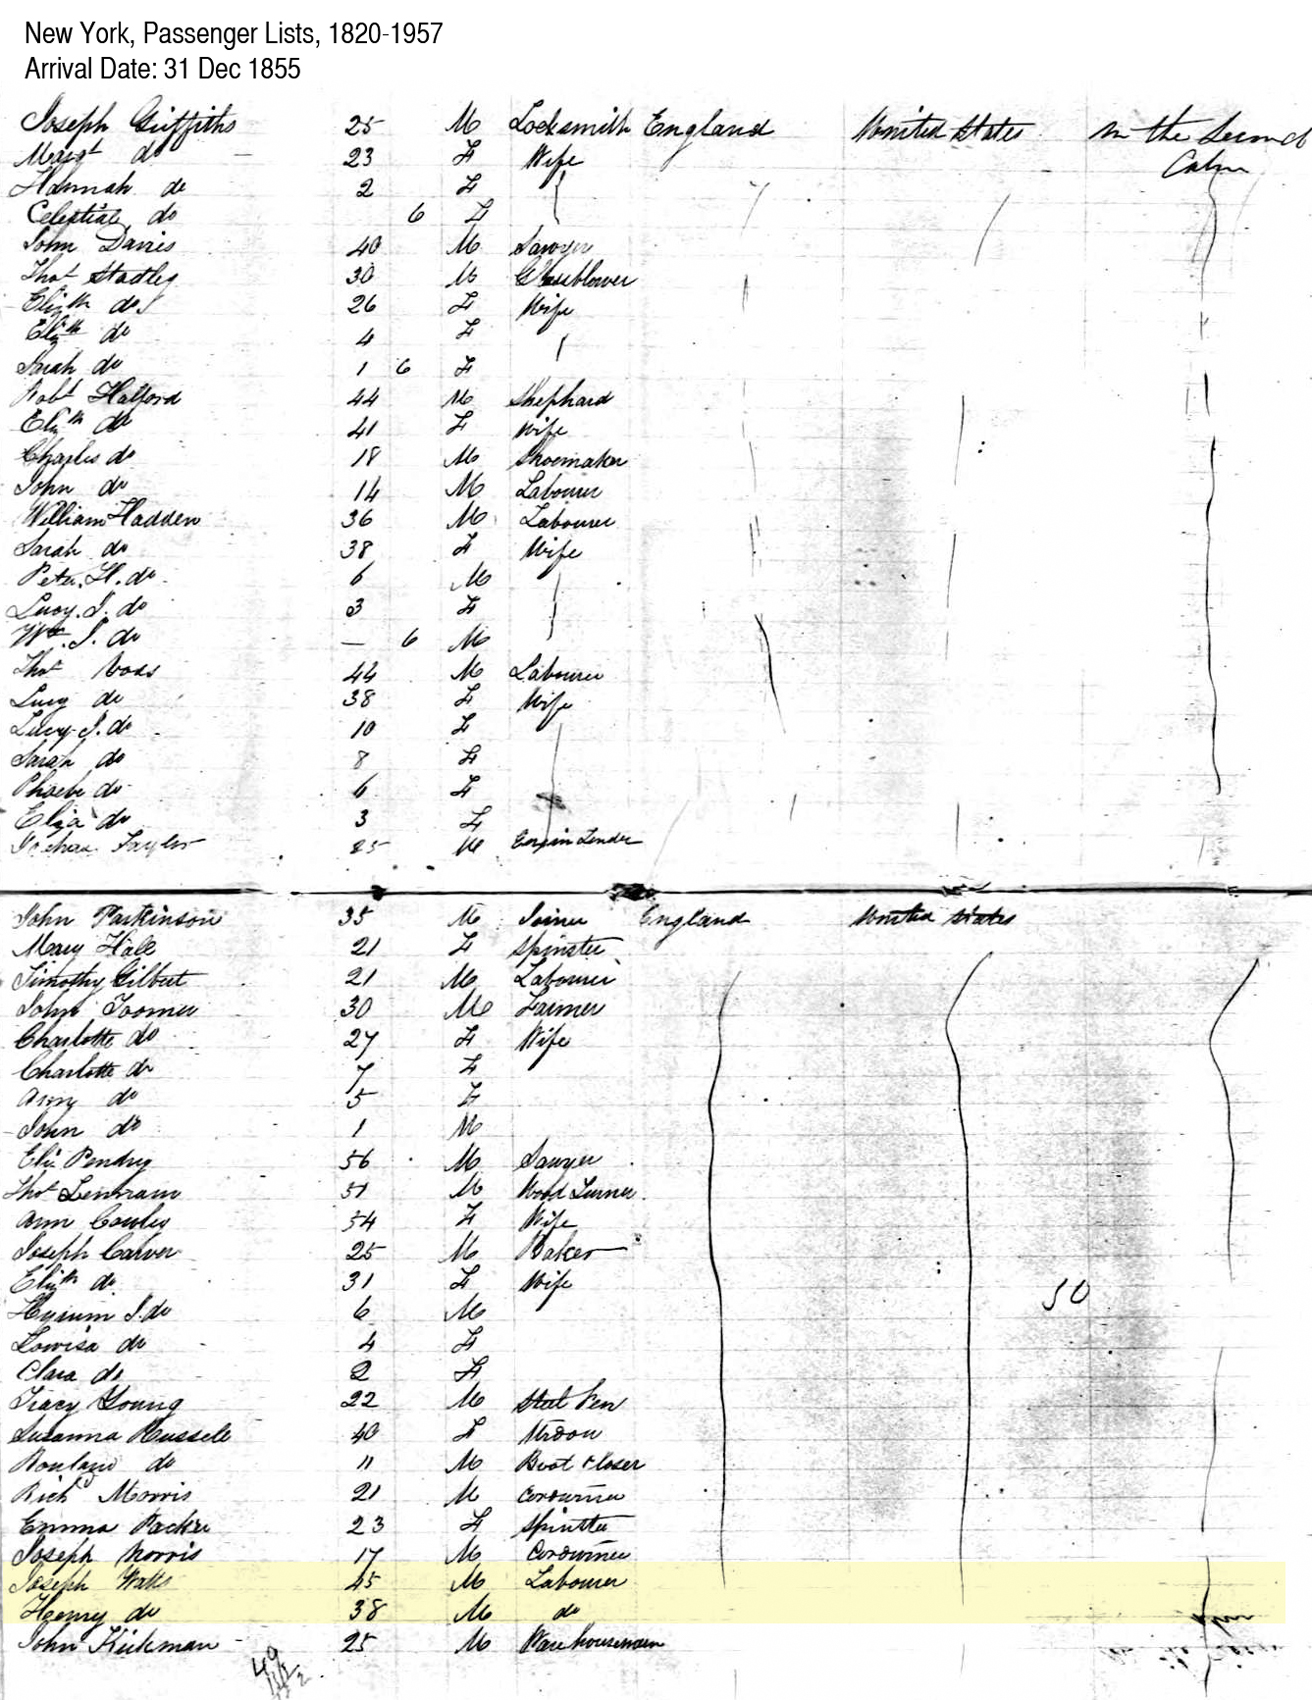 New York, Passenger Lists, 1820-1957
Arrival Date: 31 Dec 1855
Joseph Griffiths 25 M Locksmith England United States In the Second
Margt do — 23 F Wife Cabin
Hannah do 2 F
Celestial do 6 F
John Davies 40 M Sawyer
Thos Stadley 30 M Glassblower
Elizth do 26 F Wife
Elizth do 4 F
Sarah do 1 6 F
Robt Halford 44 M Shephard
Elizth do 41 F Wife
Charles do 18 M Shoemaker
John do 14 M Labourer
William Hadden 36 M Labourer
Sarah do 38 F Wife
Peter. H. do 6 M
Lucy. J. do 3 F
Wm. J. do — 6 M
Thos 44 M Labourer
Lucy do 38 F Wife
Lucy J. do 10 F
Sarah do 8 F
Phoebe do 6 F
Eliza do 3 F
Taylor 25 M
John Parkinson 35 M Joiner England United States
Mary Hale 21 F Spinster
Timothy Gilbert 21 M Labourer
John Toomer 30 M Farmer
Charlotte do 27 F Wife
Charlotte do 7 F
Amy do 5 F
John do 1 M
Eli Pendry 56 M Sawyer
Thos 51 M Wood Turner
Ann Cowley 54 F Wife
Joseph Carver 25 M Baker
Elizth do 31 F Wife
Hyrum J. do 6 M
Lowisa do 4 F
50
Clara do 2 F
Tracy Young 22 M Steel Pen
Susanna Russele 40 F
Rowland do 11 M Boot Closer
Richd Morris 21 M
Emma 23 F Spinster
Joseph Norris 17 M
Joseph Watts 45 M Labourer
Henry do 38 M do
John Kirkman 25 M Warehouseman